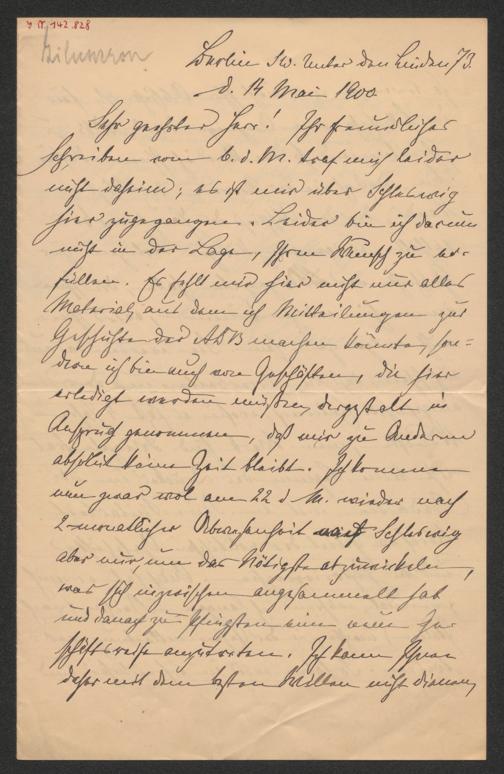 I. N. 142.828
Liliencron
Berlin SW. Unter den Linden 73.
d. 14 Mai 1900
Sehr geehrter Herr! Ihr freundliches
Schreiben vom 6. d. M. traf mich leider
nicht daheim; es ist mir über Schleswig
hier zugegangen. Leider bin ich darum
nicht in der Lage, Ihren Wunsch zu er-
füllen. Es fehlt mir hier nicht nur alles
Material, aus dem ich Mitteilungen zur
Geschichte der ADB machen könnte, son-
dern ich bin auch von Geschäften, die hier
erledigt werden müssen, dergestalt in
Anspruch genommen, daß mir zu Anderem
absolut keine Zeit bleibt. Ich komme
nun zwar wol am 22 d M. wieder nach
2-monatlicher Abwesenheit nach Schleswig
aber nur, um das Nötigste abzuwickeln,
was sich inzwischen angesammelt hat
und danach zu Pfingsten eine neue Ge-
schäftsreise anzutreten. Ich kann Ihnen
daher mit dem besten Willen nicht dienen,